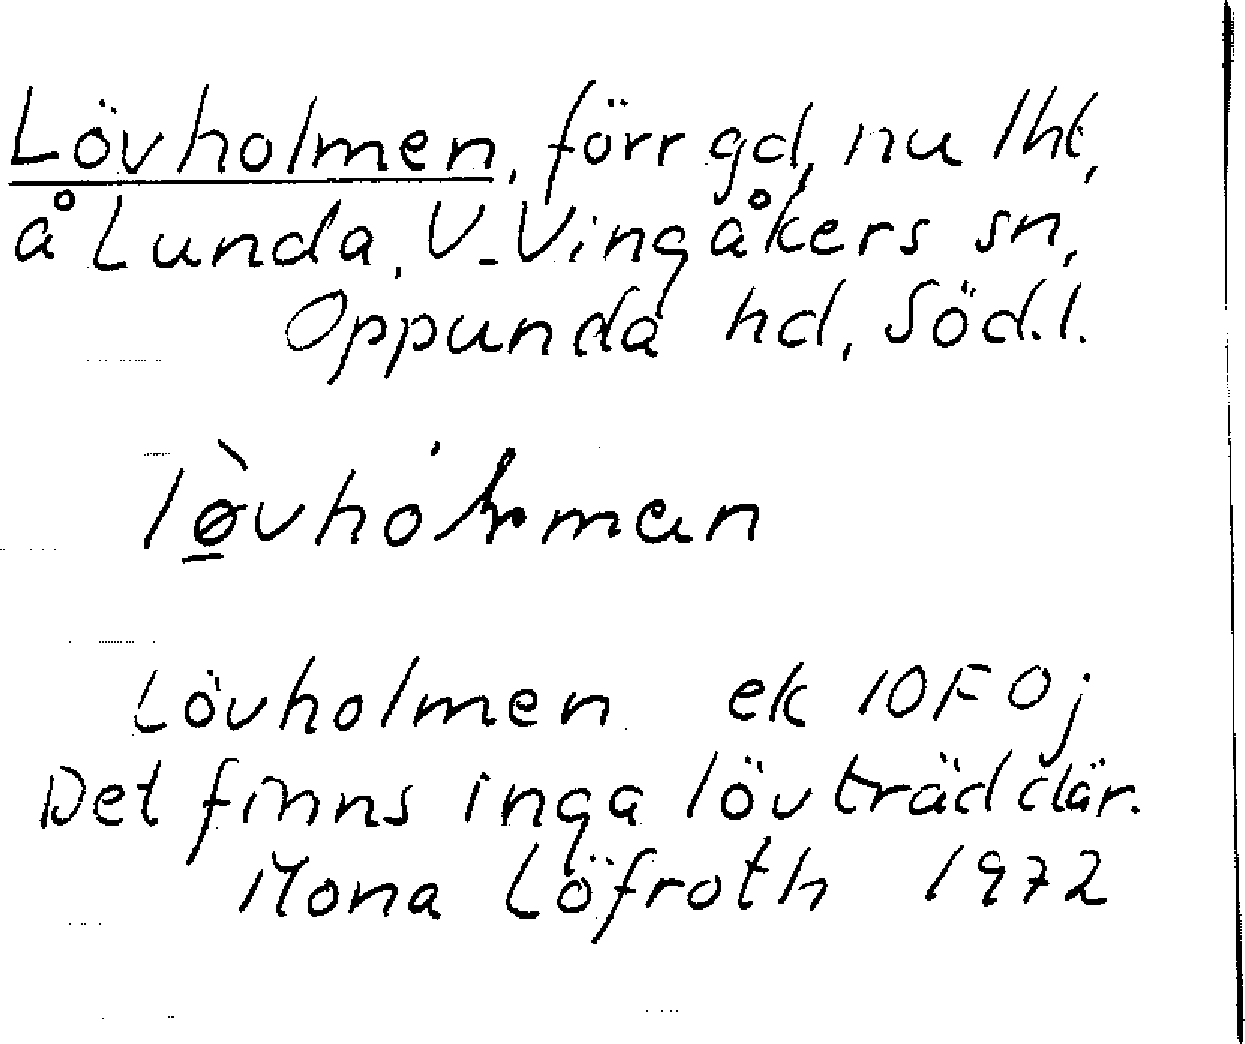 Lövholmen, förr gd, nu lht,
å Lunda, V. Vingåkers sn,
Oppunda hd, Söd.l.
Lövholmen ek 10F0j
Det finns inga lövträd där.
Mona Löfroth 1972